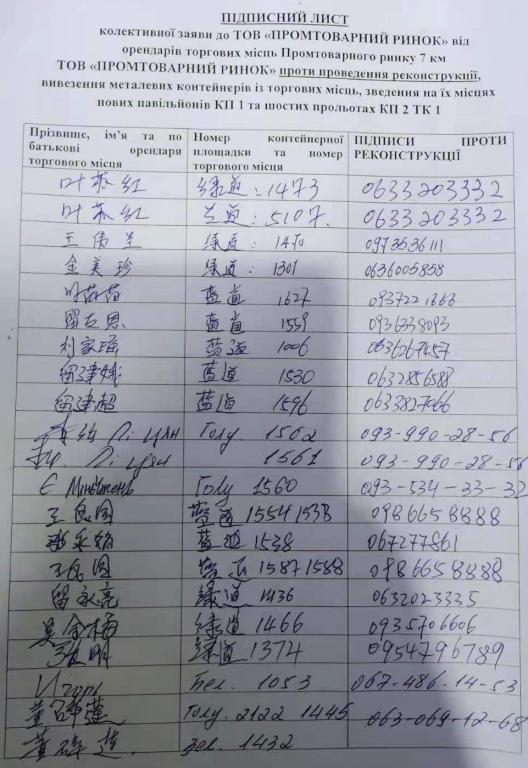 ПІДПИСНИЙ ЛИСТ
колективної заяви до ТОВ «ПРОМТОВАРНИЙ РИНОК» від
орендарів торгових місць Промтоварного ринку 7 км
ТОВ «ПРОМТОВАРНИЙ РИНОК» проти проведення реконструкції,
вивезення металевих контейнерів із торгових місць, зведення на їх місцях
нових павільйонів КП 1 та шостих прольотах КП 2 ТК 1
Прізвище, ім'я та по батькові орендаря торгового місця
Номер контейнерної площадки та номер торгового місця
ПІДПИСИ ПРОТИ РЕКОНСТРУКЦІЇ
叶 红 绿道: 1473 0633203332
叶 红 兰道: 5107. 0633203332
王 绿道: 1470 0973536111
金美珍 绿道: 1301 0636005858
蓝道 1627
留 恩 蓝道 1559 0936338093
刘家 蓝道 1006
留建 蓝道 1530 0632856588
留建超 蓝道 1596 0633827066
Лі Цян Голу. 1562 093-990-28-56
Лі Цян 1561 093-990-28-56
Є Голу 1560 093-534-33-32
王 国 蓝道 1554 1538 0986658888
蓝道 1538 067277861
王 国 1587 1588 0986658888
留永亮 绿道 1436 0632023335
吴金梅 绿道 1466 0935706606
张 明 绿道 1374 0954796789
Игорь Бел. 1053 067-486-14-53
董 莲 Голу. 2122 1445 063-069-12-68
董 莲. зел. 1432